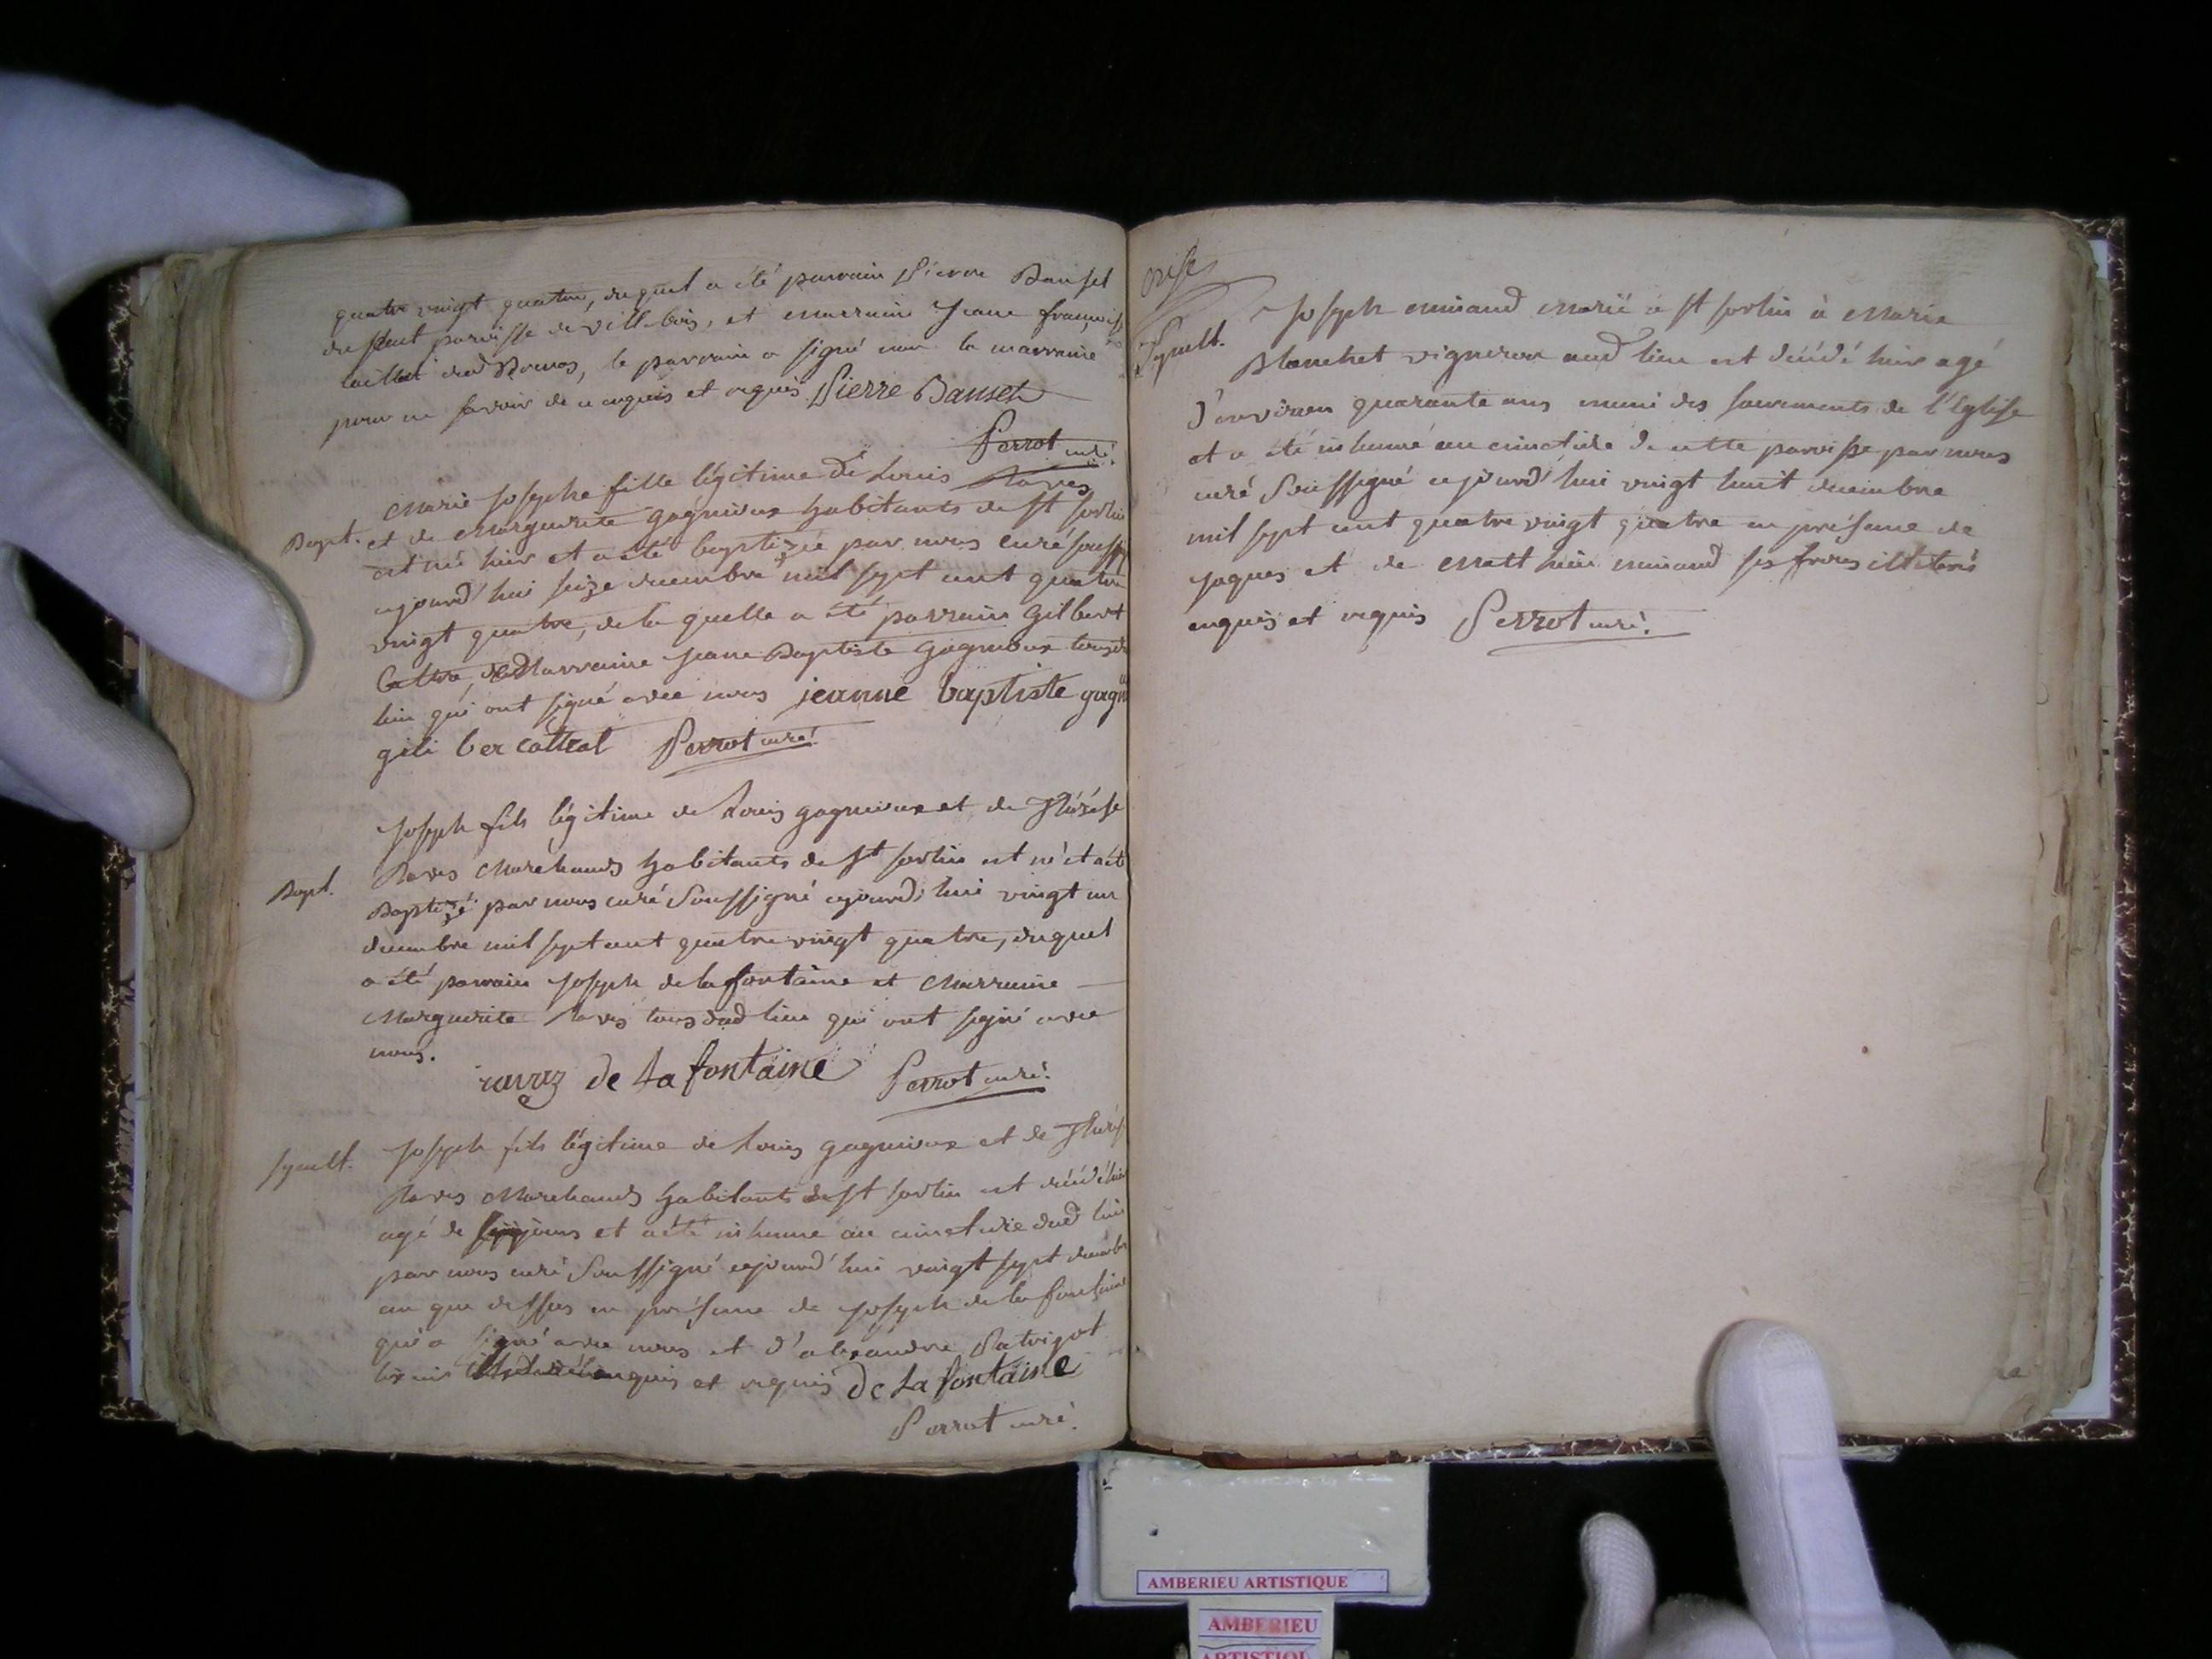 quatre vingt quatre, duquel a été parrain Pierre Banset
du Saut paroisse de Villebois, et marraine Jeane françoise
dud le parrain a signé non la marraine
pour ne savoir de ce enquis et requis Pierre Banset
Perrot curé.
Marie Josephe fille légitime de Louis Raves
Bapt. et de Marguerite gagnieux habitants de St Sorlin
est né hier et a été baptizée par nous curé soussig
cejourd'hui seize decembre mil sept cent quatre
vingt quatre, de la quelle a été parrain Gilbert
Marraine Jeane Baptiste gagnieux tous du
lieu qui ont signé avec nous jeanne baptiste gagn
gili ber cottrat Perrot curé.
Joseph fils légitime de Louis gagnieux et de Thérèse
Raves Marchands habitants de St Sorlin est né et a été
Bapt. Baptizé par nous curé Soussigné cejourd'hui vingt un
decembre mil sept cent quatre vingt quatre, duquel
a été parrain Joseph de la fontaine et Marraine
Marguerite Raves tous dud lieu qui ont signé avec
nous.
ravaz de La fontaine Perrot curé.
Sepult. Joseph fils légitime de Louis gagnieux et de Thérès
Raves Marchands habitants de St Sorlin est décédé hier
agé de jours et a été inhumé au cimetiere dud lieu
par nous curé Soussigné cejourd'hui vingt sept decembre
an que dessus en présence de Joseph de la fontaine
qui a signé avec nous et d'alexandre Patrigot
enquis et requis De La fontaine
Perrot curé.
Joseph minand marié a St Sorlin à Marie
Sepult. Blanchet vigneron aud lieu est décédé hier agé
d'environ quarante ans muni des sacrements de l'Eglise
et a été inhumé au cimetiere de cette paroisse par nous
curé Soussigné cejourd'hui vingt huit decembre
mil sept cent quatre vingt quatre en présence de
jaques et de Matthieu minand ses freres illiterés
enquis et requis Perrot curé.
AMBERIEU ARTISTIQUE
AMBERIEU
ARTISTIQUE